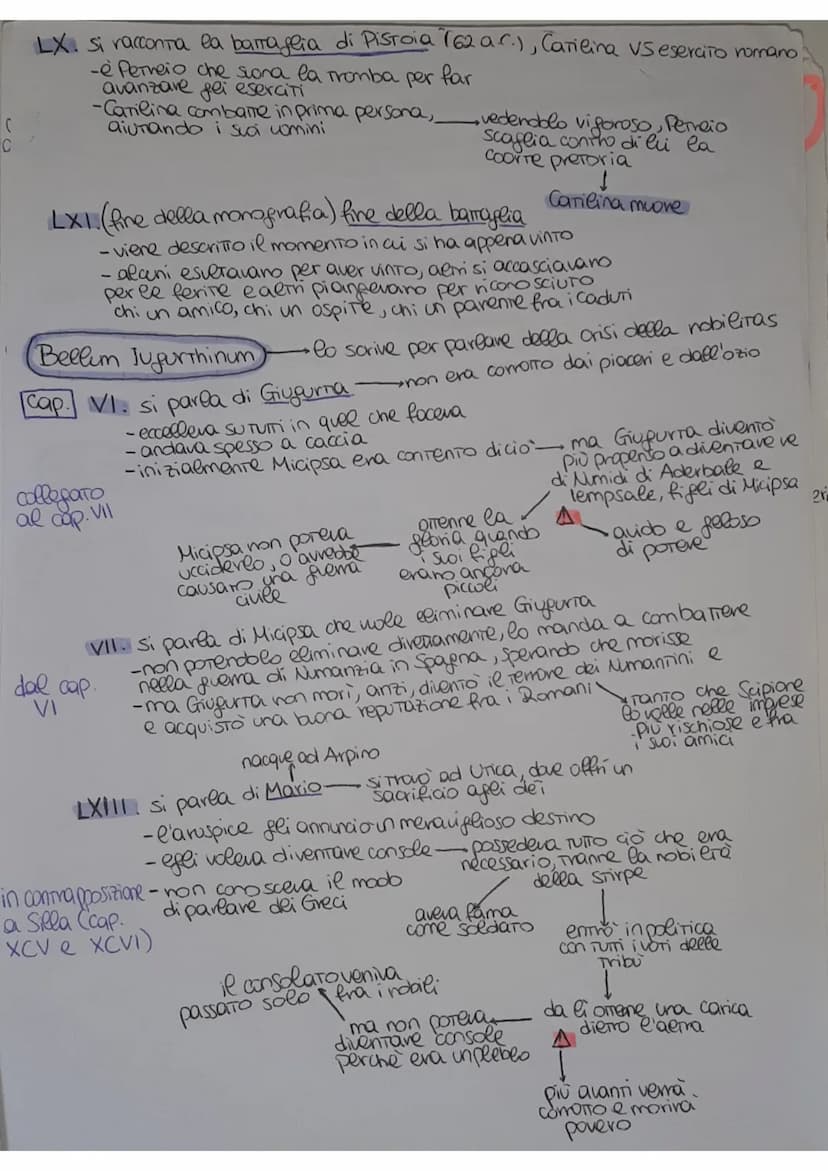 LX. si racconta la battaglia di Pistoia (62 a.C.), Catilina VS esercito romano
-è Petreio che suona la tromba per far
avanzare gli eserciti
-Catilina combatte in prima persona,
aiutando i suoi uomini
vedendolo vigoroso, Petreio
scaglia contro di lui la
coorte pretoria
Catilina muore
LXI. (fine della monografia) fine della battaglia
- viene descritto il momento in cui si ha appena vinto
- alcuni esultavano per aver vinto, altri si accasciavano
per le ferite e altri piangevano per riconosciuto
chi un amico, chi un ospite, chi un parente fra i caduti
Bellum Iugurthinum
lo scrive per parlare della crisi della nobilitas
cap. VI. si parla di Giugurta
non era corrotto dai piaceri e dall'ozio
-eccelleva su tutti in quel che faceva
-andava spesso a caccia
-inizialmente Micipsa era contento di ciò
ma Giugurta diventò
più propenso a diventare re
di Numidi di Aderbale e
Iempsale, figli di Micipsa
avido e geloso
di potere
ottenne la
gloria quando
i suoi figli
erano ancora
piccoli
Micipsa non poteva
ucciderlo, o avrebbe
causato una guerra
civile
collegato
al cap. VII
VII. si parla di Micipsa che vuole eliminare Giugurta
-non potendolo eliminare direttamente, lo manda a combattere
nella guerra di Numanzia in Spagna, sperando che morisse
-ma Giugurta non morì, anzi, diventò il terrore dei Numantini e
e acquistò una buona reputazione fra i Romani
tanto che Scipione
lo volle nelle imprese
più rischiose e fra
i suoi amici
dal cap.
VI
nacque ad Arpino
LXIII. si parla di Mario
si trovò ad Utica, dove offrì un
sacrificio agli dei
- l'aruspice gli annunciò un meraviglioso destino
- egli voleva diventare console
possedeva tutto ciò che era
necessario, tranne la nobiltà
della stirpe
- non conosceva il modo
di parlare dei Greci
in contrapposizione
a Silla (cap.
XCV e XCVI)
aveva fama
come soldato
entrò in politica
con tutti i voti delle
tribù
da lì ottenne una carica
dietro l'altra
ma non poteva
diventare console
perchè era un plebeo
il consolato veniva
passato solo fra i nobili
più avanti verrà
corrotto e morirà
povero